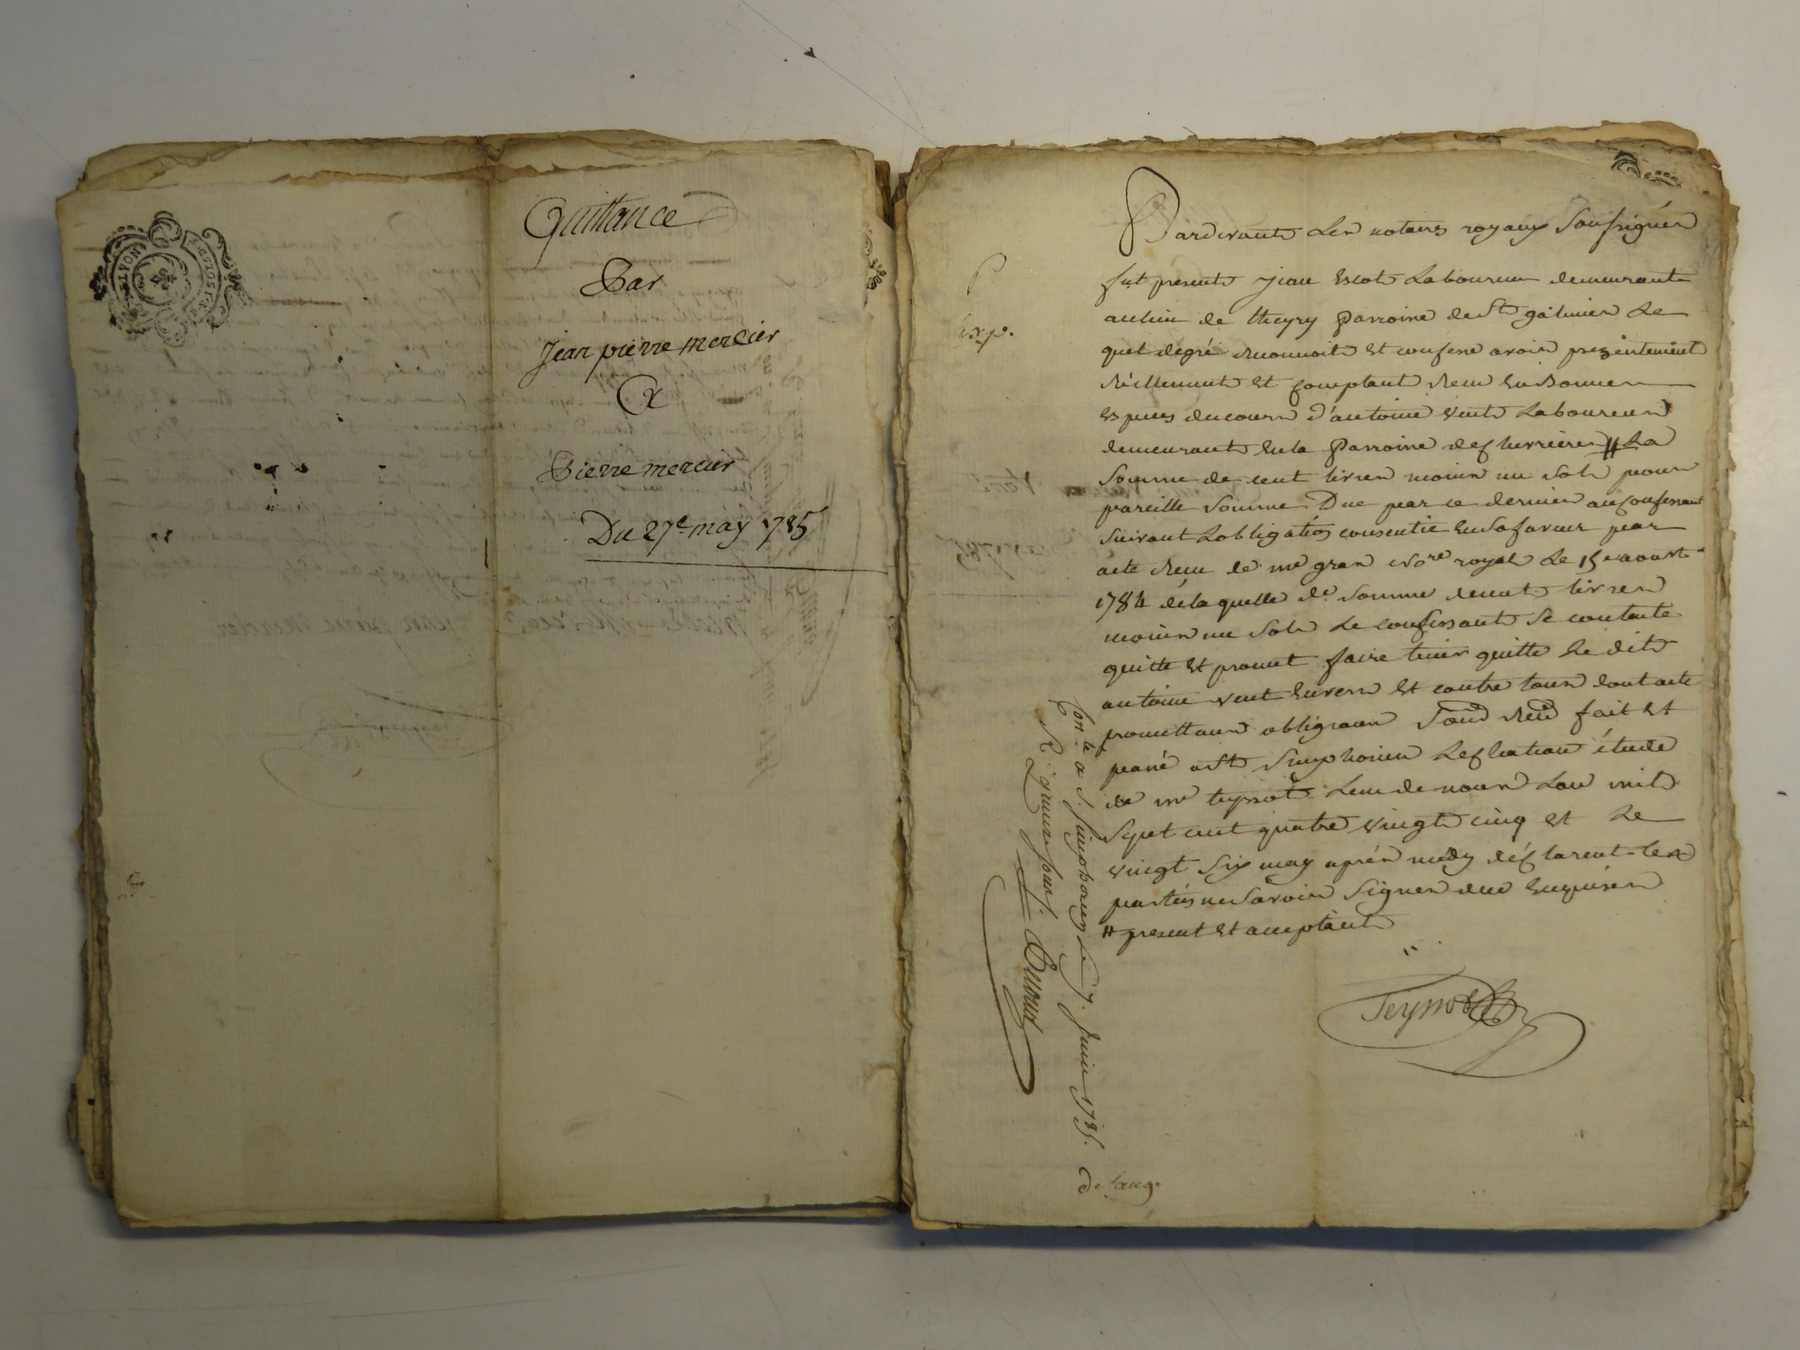 Quittance
Par
Jean pierre mercier
A
Pierre mercier
Du 27e. may 1785
LYON
P
Exp.
Pardevant Les notaires royaux Soussignés
fut present Jean Escot Laboureur demeurant
au lieu de Meyry Parroisse de St galmier Le
quel de gré reconnoit et confesse avoir presentement
réellement et comptant reçu en Bonnes
espèces de cours d'antoine vent Laboureur
demeurant en la Parroisse de chevrieres # La
Somme de cent livres moins un Sol pour
pareille Somme Due par ce dernier au confessant
Suivant L'obligation consentie en Sa faveur par
acte reçu de me gran no.re royal Le 15e aoust
1784 de la quelle de. Somme de cent livres
moins un Sol Le confessant Se contente
quitte et promet faire tenir quitte Le dit
antoine vent envers et contre tous dont acte
promettant obligeant Soud rend fait et
passé a St Simphorien Le chateau étude
de me teyssot L'un de nous L'an mil
Sept cent quatre vingt cinq et Le
vingt Six may après midy déclarent les
parties ne Savoir Signer de ce enquises
# present et acceptant
Teyssot
Con.lé a S. Simphorien le 7. Juin 1785.
R. quinze sous.
de Lang.